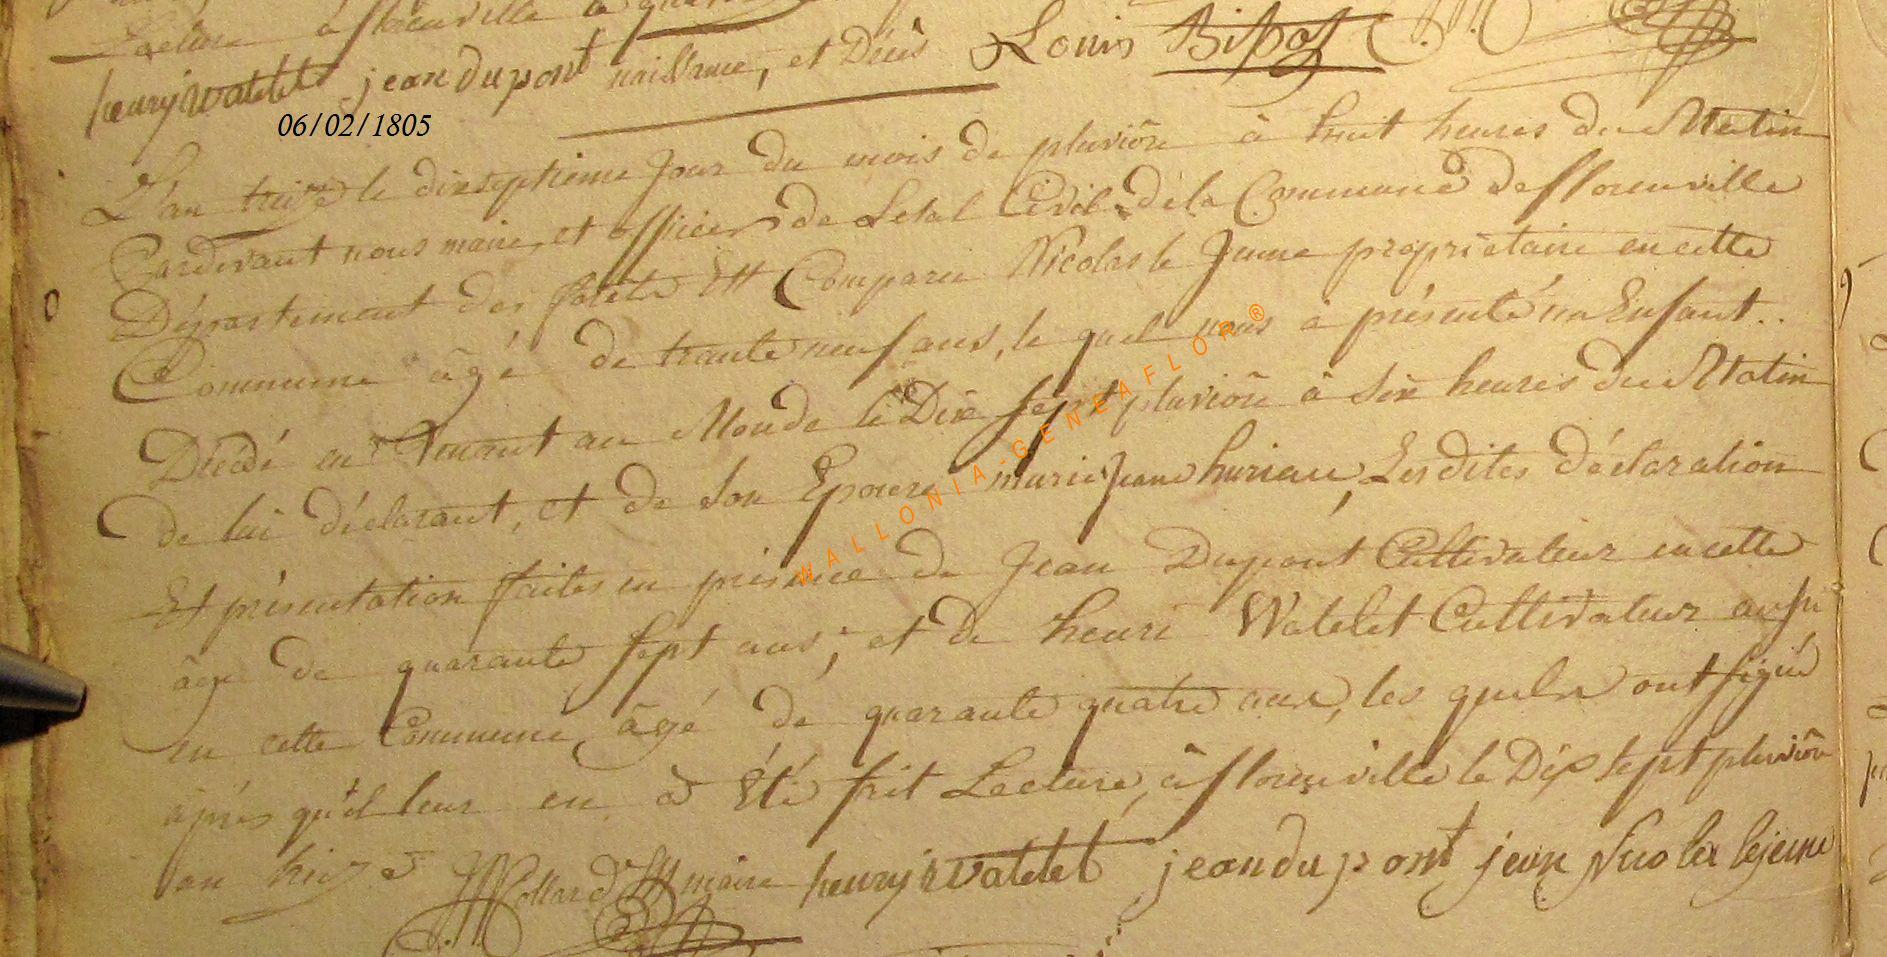 Lecture à florenville le
henry watelet jean dupont naissance, et Décès Louis Bihot
06/02/1805
L'an treize le dixseptieme Jour du mois de pluviôse à huit heures du Matin
Pardevant nous maire, et officier de Letat Civil de la Commune de fflorenville
Département des forêts Est Comparu Nicolas le Jeune proprietaire en cette
Commune âgé de trante neuf ans, le quel nous a présenté un Enfant..
Décédé en Venant au Monde le Dix sept pluviôse à Six heures du Matin
de lui déclarant, et de Son Epouse marie Jeane huriau, Les dites déclaration
Et présentation faites en présence de Jean Dupont Cultivateur en cette
âgé de quarante sept ans; et de henri Watelet Cultivateur aussi
en cette Commune, âgé de quarante quatre ans, les quels ont signé
après qu'il leur en a Été fait Lecture, à florenville le Dix sept pluviôse
an treize maire henry watelet jean dupont jean Nicolas lejeune
WALLONIA-GENEAFLOR®